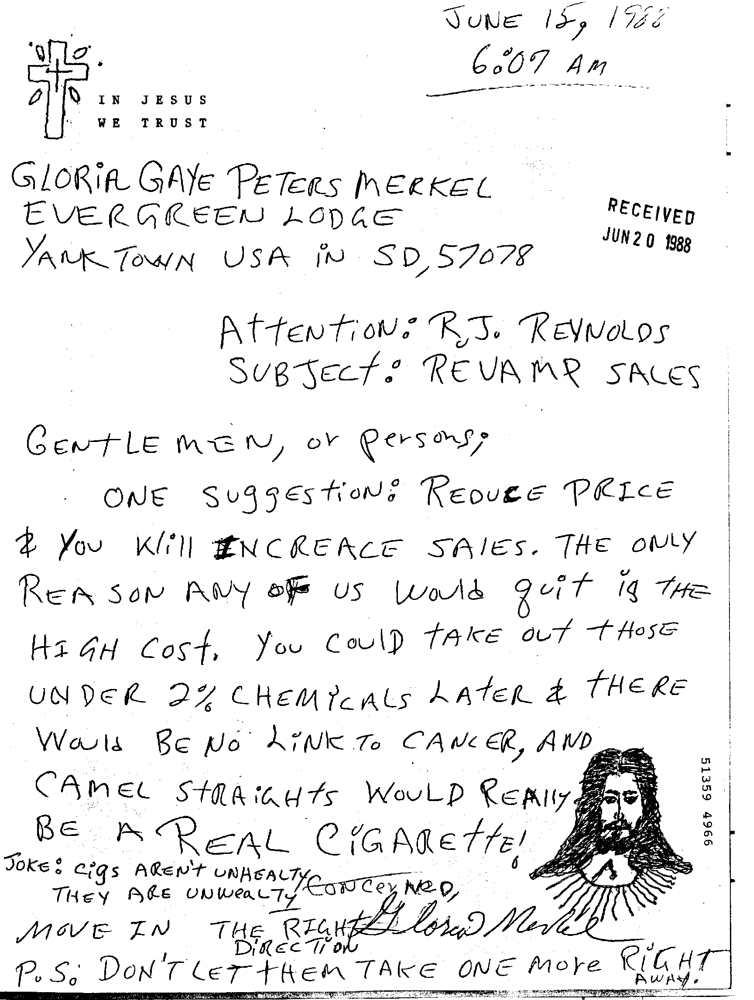 JUNE 15, 1988
6:07 AM
IN JESUS
WE TRUST
GLORIA GAYE PETERS MERKEL
EVERGREEN LODGE
YANKTOWN USA iN SD, 57078
RECEIVED
JUN 20 1988
AttENtiON: R.J. REYNOLDS
SUBJECt: REVAMP SALES
GENtLEMEN, or persons;
ONE SuggEStiON: REDUCE PRICE
& YOU Will INCREACE SAlES. THE ONLY
REASON ANY OF US Would quit is tHE
HIGH COSt. YOU COULD tAKE OUt tHOSE
UNDER 2% CHEMiCALS LAtER & tHERE
Would BE NO LiNK TO CANCER, AND
CAMEL StRAiGHtS WOULD REAlly
BE A REAL CiGAREttE!
JOKE: Cigs AREN'T UNHEALTY
THEY ARE UNWEALTY
CONCERNED,
MOVE IN THE RIGHT
DIRECTION
Gloria Merkel
P.S: DON'T LET tHEM TAKE ONE MORE RiGHT
AWAY.
51359 4966